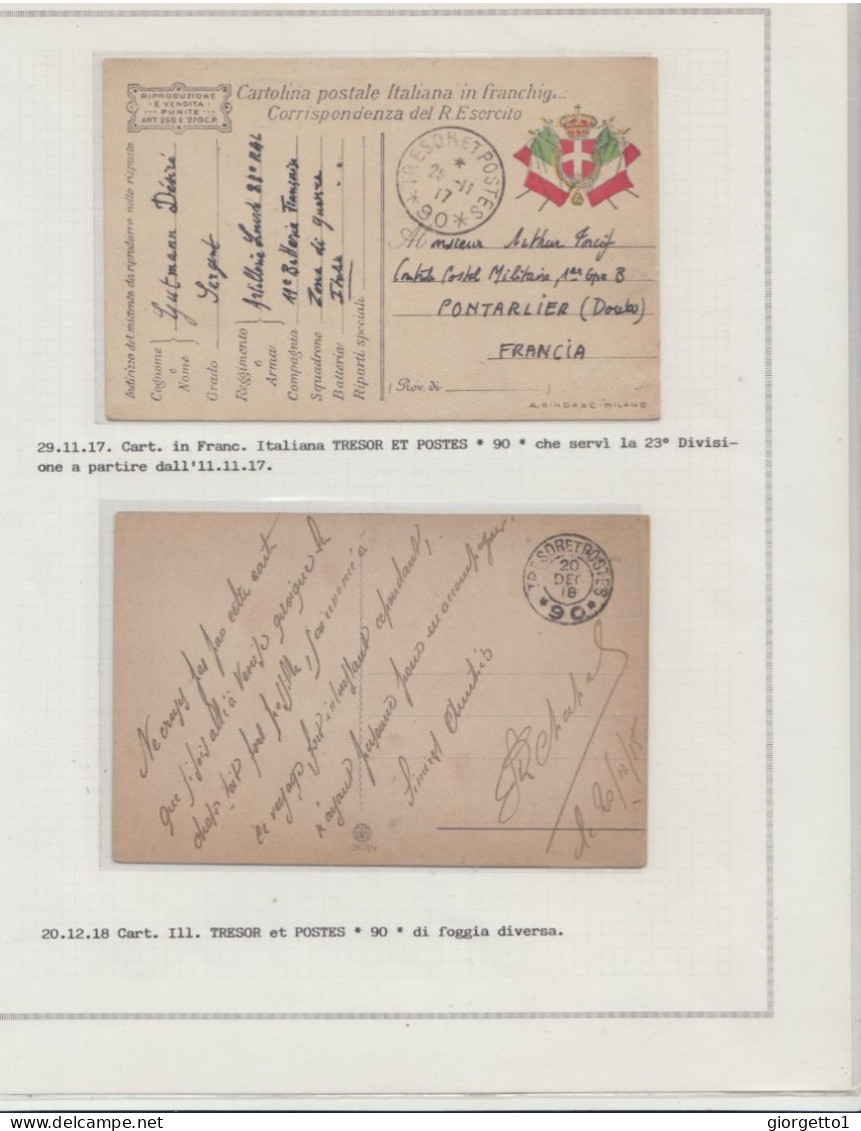 RIPRODUZIONE
E VENDITA
PUNITE
ART. 268 E 270 C.P.
Cartolina postale Italiana in franchigi...
Corrispondenza del R. Esercito
TRESOR ET POSTES
*
29 -11
17
* 90 *
Indirizzo del mittente da riprodurre nella risposta
Cognome e Nome Gutmann Désiré
Grado Sergent
Reggimento e Arma Artillerie Lourde 88º RAL
Compagnia 11e Batterie Française
Squadrone Zona di guerra
Batteria
Riparti speciali
A Monsieur Arthur
Postal Militaire, 1er Gpe B
PONTARLIER (Doubs)
FRANCIA
(Prov. di
MILANO
29.11.17. Cart. in Franc. Italiana TRESOR ET POSTES * 90 * che servì la 23° Divisi-
one a partire dall'11.11.17.
TRESOR ET POSTES
20
DEC
18
*90*
Ne croyez pas par cette carte
que je sois allé à Venise quoique la
chose soit fort possible
ce voyage fort intéressant cependant,
n'ayant personne pour m'accompagner.
le 20/12/18
20.12.18 Cart. Ill. TRESOR et POSTES * 90 * di foggia diversa.
delcampe.net
giorgetto1